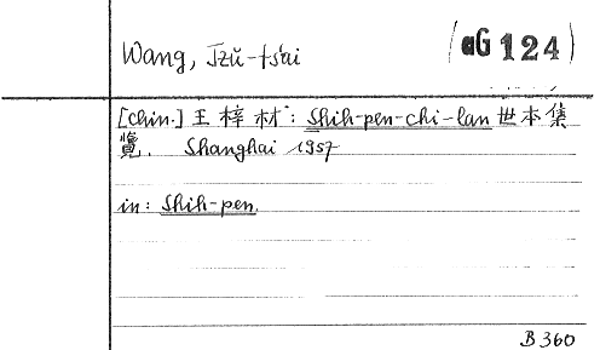 Wang, Tzŭ-ts'ai
(aG 124)
[Chin.] 王梓材: Shih-pen-chi-lan 世本集
覽. Shanghai 1957
in: Shih-pen.
B 360